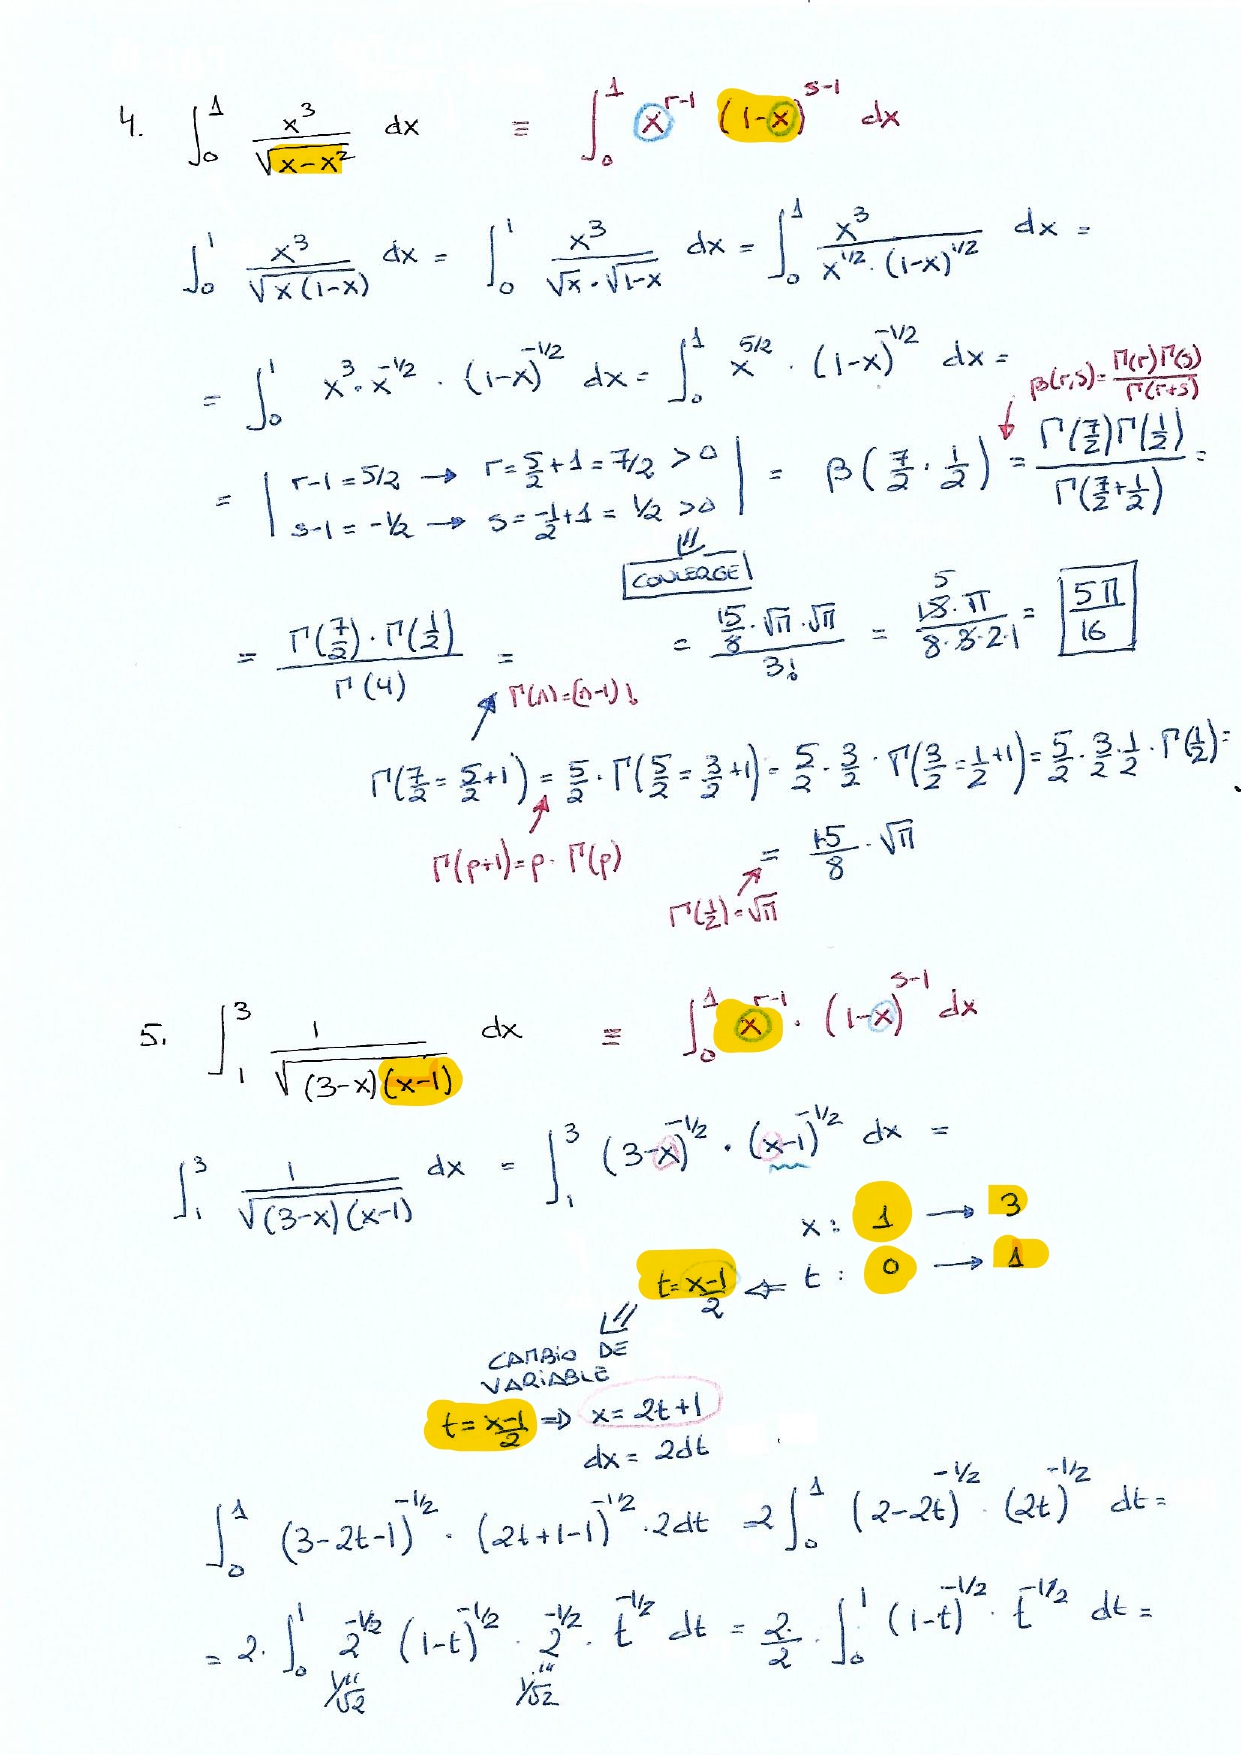 4. ∫₀¹ x³/√(x-x²) dx ≡ ∫₀¹ x^(r-1) (1-x)^(s-1) dx
∫₀¹ x³/√(x(1-x)) dx = ∫₀¹ x³/(√x · √(1-x)) dx = ∫₀¹ x³/(x^(1/2) · (1-x)^(1/2)) dx =
= ∫₀¹ x³ · x^(-1/2) · (1-x)^(-1/2) dx = ∫₀¹ x^(5/2) · (1-x)^(-1/2) dx =
β(r,s) = Γ(r)Γ(s)/Γ(r+s)
= | r-1 = 5/2 → r = 5/2 + 1 = 7/2 > 0
s-1 = -1/2 → s = -1/2 + 1 = 1/2 > 0 | = β(7/2 · 1/2) = Γ(7/2)Γ(1/2)/Γ(7/2 + 1/2) =
⇓
CONVERGE
= Γ(7/2) · Γ(1/2)/Γ(4) = = (15/8 · √π · √π)/3! = 5 15 · π/(8 · 3 · 2 · 1) = 5π/16
Γ(n) = (n-1)!
Γ(7/2 = 5/2 + 1) = 5/2 · Γ(5/2 = 3/2 + 1) = 5/2 · 3/2 · Γ(3/2 = 1/2 + 1) = 5/2 · 3/2 · 1/2 · Γ(1/2) =
Γ(p+1) = p · Γ(p)
= 15/8 · √π
Γ(1/2) = √π
5. ∫₁³ 1/√((3-x)(x-1)) dx ≡ ∫₀¹ x^(r-1) · (1-x)^(s-1) dx
∫₁³ 1/√((3-x)(x-1)) dx = ∫₁³ (3-x)^(-1/2) · (x-1)^(-1/2) dx =
x : 1 → 3
t = (x-1)/2 ⇐ t : 0 → 1
⇓
CAMBIO DE
VARIABLE
t = (x-1)/2 ⇒ x = 2t+1
dx = 2dt
∫₀¹ (3-2t-1)^(-1/2) · (2t+1-1)^(-1/2) · 2dt = 2∫₀¹ (2-2t)^(-1/2) · (2t)^(-1/2) dt =
= 2 · ∫₀¹ 2^(-1/2) (1-t)^(-1/2) · 2^(-1/2) · t^(-1/2) dt = 2/2 · ∫₀¹ (1-t)^(-1/2) · t^(-1/2) dt =
1/√2 1/√2